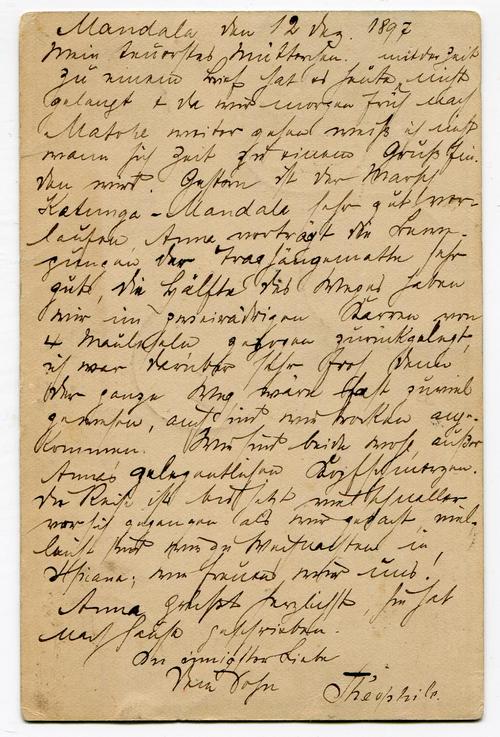 Mandala den 12 Dez. 1897
Mein teuerstes Mütterchen. mit der Zeit
zu einem Brief hat es heute nicht
gelangt & da wir morgen früh nach
Matope weiter gehen weiß ich nicht
wann sich Zeit zu einem Gruß fin-
den wird. Gestern ist der Marsch
Katunga - Mandala sehr gut ver-
laufen, Anna verträgt die Bewe-
gungen der Traghängematte sehr
gut, die Hälfte des Weges haben
wir im zweirädrigen Karren von
4 Mauleseln gezogen zurückgelegt,
ich war darüber sehr froh denn
der ganze Weg wäre fast zuviel
gewesen, auch sind wir trocken ange-
kommen. Wir sind beide wohl, außer
Annas gelegentlichen Kopfschmerzen.
Die Reise ist bis jetzt viel schneller
vor sich gegangen als wir gedacht, viel-
leicht sind wir zu Weihnachten in
wir freuen uns!
Anna grüßt herzlichst, sie hat
nach Hause geschrieben.
In innigster Liebe
Dein Sohn Théophile.